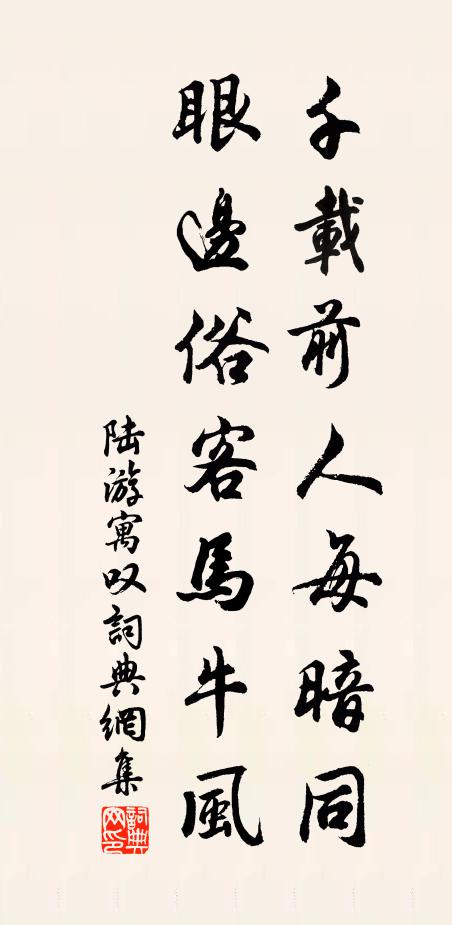 千載前人每暗同
眼邊俗客馬牛風
陆游寓叹詞典網集
詞典网印